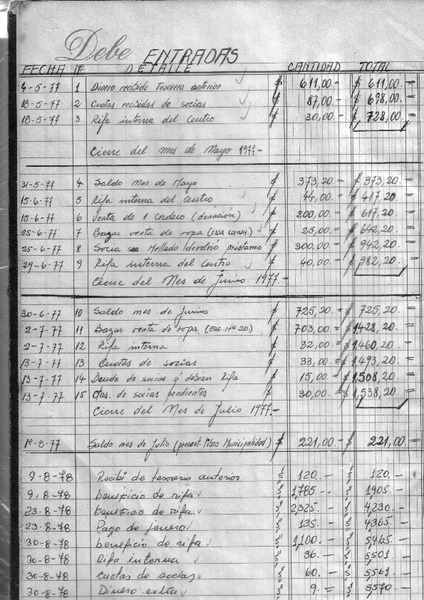 Debe ENTRADAS
FECHA Nº DETALLE CANTIDAD TOTAL
4-5-77 1 Dinero recibido Tesorera anterior $ 611,00.- $ 611,00.-
18-5-77 2 Cuotas recibidas de socias $ 87,00.- $ 698,00.-
18-5-77 3 Rifa interna del Centro $ 30,00.- $ 728,00.-
Cierre del mes de Mayo 1977.-
31-5-77 4 Saldo Mes de Mayo $ 373,20.- $ 373,20.-
15-6-77 5 Rifa interna del Centro $ 44,00.- $ 417,20
15-6-77 6 Venta de 1 cordero (donación) $ 200,00.- $ 617,20.-
25-6-77 7 Bazar venta de ropa $ 25,00.- $ 642,20.-
25-6-78 8 Socia Mellado devolvió préstamo $ 300,00.- $ 942,20.-
29-6-77 9 Rifa interna del Centro $ 40,00.- $ 982,20.-
Cierre del Mes de Junio 1977.-
30-6-77 10 Saldo mes de Junio $ 725,20.- $ 725,20.-
2-7-77 11 Bazar venta de ropa. (Esc. nº 20) $ 703,00.- $ 1.428,20.-
2-7-77 12 Rifa interna $ 32,00.- $ 1.460,20.-
13-7-77 13 Cuotas de socias $ 33,00.- $ 1.493,20.-
13-7-77 14 Deuda de socias q' debían Rifa $ 15,00.- $ 1.508,20.-
13-7-77 15 Ctas. de socias pendientes $ 30,00.- $ 1.538,20.-
Cierre del Mes de Julio 1977.-
1º-8-77 Saldo mes de Julio Municipalidad) $ 221,00.- $ 221,00.-
9-8-78 Recibí de tesorera anterior $ 120.- $ 120.-
9-8-78 beneficio de rifa $ 1,785.- $ 1905.-
23-8-78 beneficio de rifa $ 2325.- $ 4,230.-
23-8-78 Pago de género $ 135.- $ 4365.-
30-8-78 beneficio de rifa $ 1,100.- $ 5465.-
30-8-78 Rifa interna $ 36.- $ 5501.-
30-8-78 cuotas de socias $ 60.- $ 5561.-
30-8-78 Dinero extra $ 9.- $ 5570.-